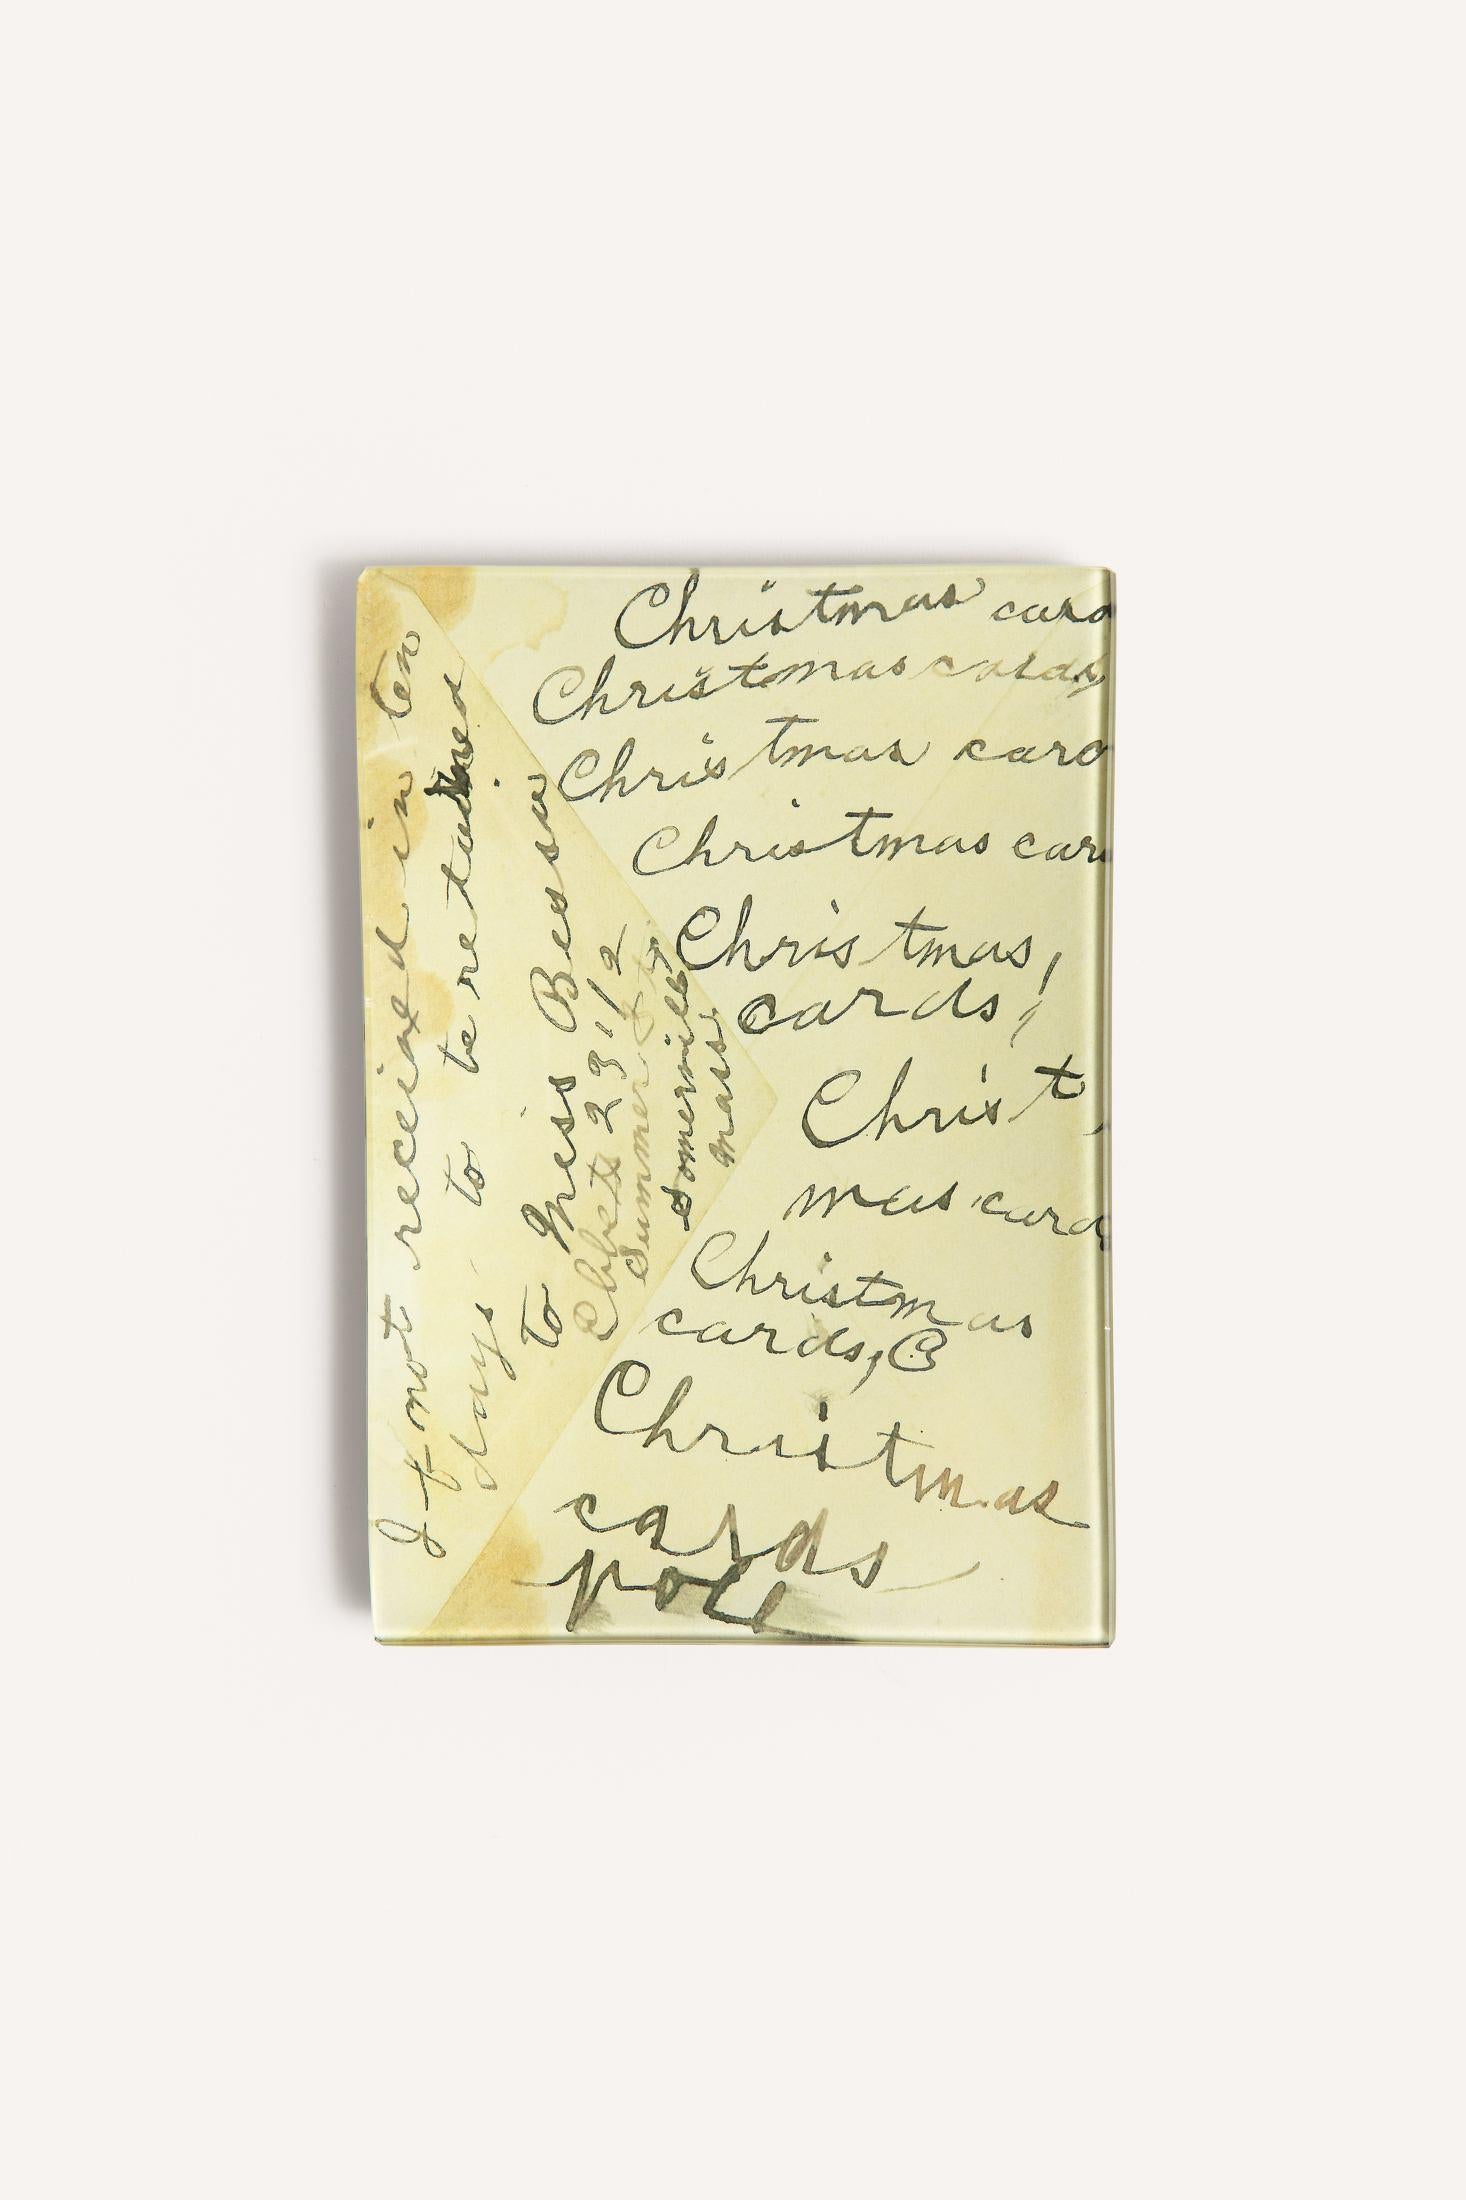 Christmas card
Christmas cards,
Christmas card
Christmas car
Christmas,
cards!
Christ
mas card
Christmas
cards, C
Christmas
cards
If not recieved in ten
days. to be retu ned
to Miss Bessie
23 1/2
Summer St.
Somerville,
Mass.